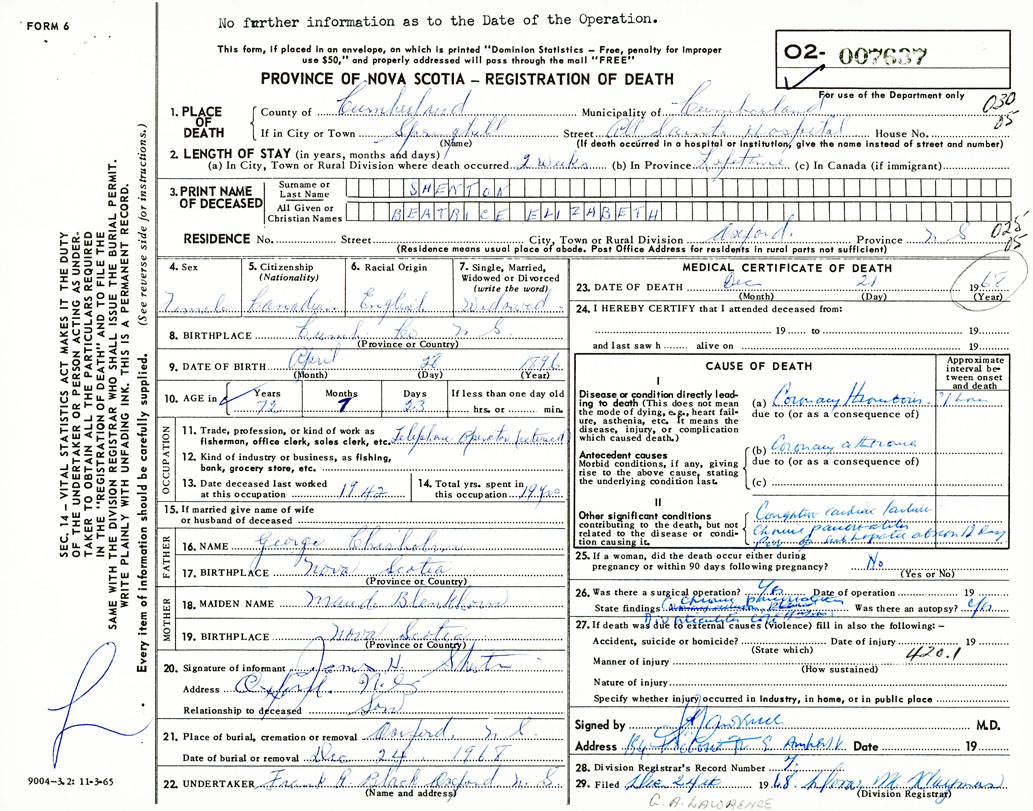 FORM 6
No further information as to the Date of the Operation.
This form, if placed in an envelope, on which is printed "Dominion Statistics – Free, penalty for improper
use $50," and properly addressed will pass through the mail "FREE"
PROVINCE OF NOVA SCOTIA – REGISTRATION OF DEATH
O2- 007637
For use of the Department only
030
05
1. PLACE OF DEATH
County of Cumberland Municipality of Cumberland
If in City or Town Springhill Street All Saints Hospital House No.
(Name) (If death occurred in a hospital or institution, give the name instead of street and number)
2. LENGTH OF STAY (in years, months and days)
(a) In City, Town or Rural Division where death occurred 2 Weeks (b) In Province Lifetime (c) In Canada (if immigrant)
3. PRINT NAME OF DECEASED
Surname or Last Name SHENTON
All Given or Christian Names BEATRICE ELIZABETH
RESIDENCE No. Street City, Town or Rural Division Oxford. Province N S
(Residence means usual place of abode. Post Office Address for residents in rural parts not sufficient)
025
05
4. Sex Female
5. Citizenship (Nationality) Canadian
6. Racial Origin English
7. Single, Married, Widowed or Divorced (write the word) Widowed
8. BIRTHPLACE Cumb. Co. N. S.
(Province or Country)
9. DATE OF BIRTH April 28 1896
(Month) (Day) (Year)
10. AGE in Years 72 Months 7 Days 23 If less than one day old hrs. or min.
OCCUPATION
11. Trade, profession, or kind of work as fisherman, office clerk, sales clerk, etc. Telephone operator (retired)
12. Kind of industry or business, as fishing, bank, grocery store, etc.
13. Date deceased last worked at this occupation 1942
14. Total yrs. spent in this occupation
15. If married give name of wife or husband of deceased
FATHER
16. NAME George Chisholm
17. BIRTHPLACE Nova Scotia
(Province or Country)
MOTHER
18. MAIDEN NAME Maude Blenkhorn
19. BIRTHPLACE Nova Scotia
(Province or Country)
20. Signature of informant James H. Shenton
Address Oxford. N.S
Relationship to deceased Son
21. Place of burial, cremation or removal Oxford, N. S.
Date of burial or removal Dec 24 1968
22. UNDERTAKER Frank R Black Oxford N. S.
(Name and address)
MEDICAL CERTIFICATE OF DEATH
23. DATE OF DEATH Dec 21 1968
(Month) (Day) (Year)
24. I HEREBY CERTIFY that I attended deceased from:
19 to 19
and last saw h alive on 19
CAUSE OF DEATH
Approximate interval between onset and death
I
Disease or condition directly leading to death (This does not mean the mode of dying, e.g., heart failure, asthenia, etc. It means the disease, injury, or complication which caused death.)
(a) Coronary Thrombosis 1 hour
due to (or as a consequence of)
Antecedent causes
Morbid conditions, if any, giving rise to the above cause, stating the underlying condition last.
(b) Coronary atheroma
due to (or as a consequence of)
(c)
II
Other significant conditions contributing to the death, but not related to the disease or condition causing it.
Congestive cardiac failure
Chronic pancreatitis
12 days
25. If a woman, did the death occur either during pregnancy or within 90 days following pregnancy? No
(Yes or No)
26. Was there a surgical operation? Yes Date of operation 19
State findings Chronic pancreatitis Was there an autopsy? Yes
27. If death was due to external causes (violence) fill in also the following: –
Accident, suicide or homicide? Date of injury 19
(State which)
420.1
Manner of injury
(How sustained)
Nature of injury
Specify whether injury occurred in industry, in home, or in public place
Signed by M.D.
Address Amherst Date 19
28. Division Registrar's Record Number 7.
29. Filed Dec 24th 1968
(Division Registrar)
G. A. LAWRENCE
SEC. 14 – VITAL STATISTICS ACT MAKES IT THE DUTY
OF THE UNDERTAKER OR PERSON ACTING AS UNDER-
TAKER TO OBTAIN ALL THE PARTICULARS REQUIRED
IN THE "REGISTRATION OF DEATH" AND FILE THE
SAME WITH THE DIVISION REGISTRAR WHO SHALL ISSUE THE BURIAL PERMIT.
WRITE PLAINLY WITH UNFADING INK. THIS IS A PERMANENT RECORD.
Every item of information should be carefully supplied. (See reverse side for instructions.)
9004-3.2: 11-3-65